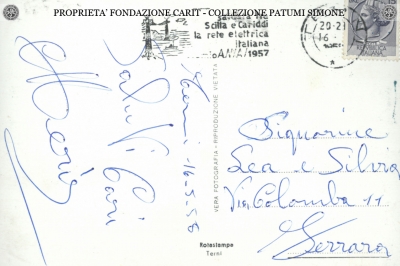 PROPRIETA' FONDAZIONE CARIT - COLLEZIONE PATUMI SIMONE
Scilla e Cariddi
la rete elettrica
italiana
1957
20-21
16 -
Terni 16-5-58
Saluti Cari
VERA FOTOGRAFIA - RIPRODUZIONE VIETATA
Signorine
Lea e Silvia
Via Colomba 11
Ferrara
Rotostampa
Terni